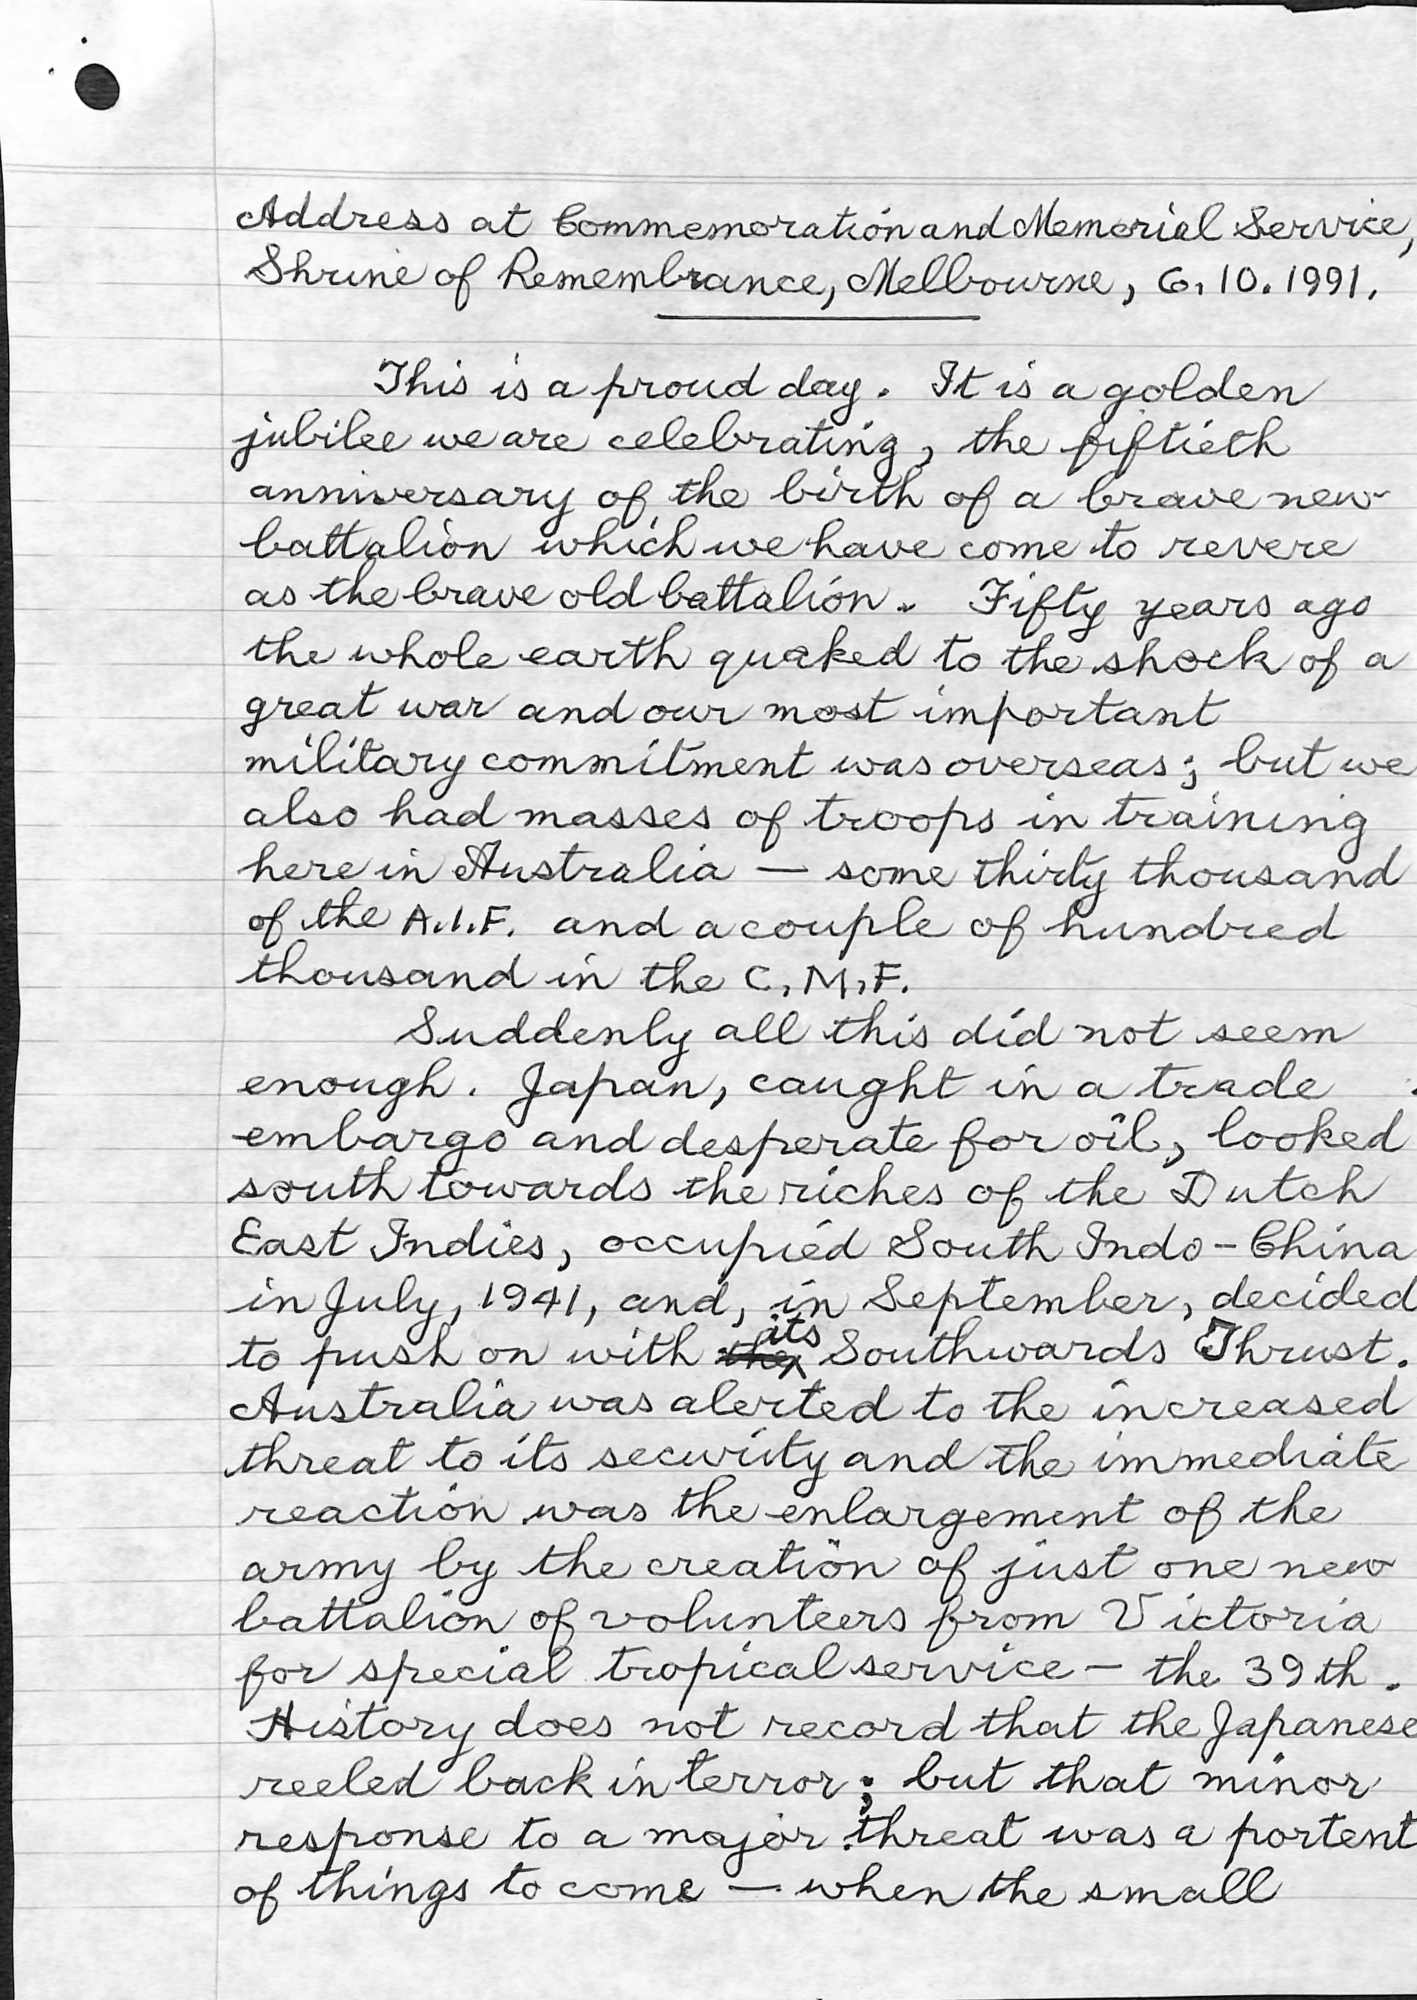 Address at Commemoration and Memorial Service,
Shrine of Remembrance, Melbourne, 6.10.1991.
This is a proud day. It is a golden
jubilee we are celebrating, the fiftieth
anniversary of the birth of a brave new
battalion which we have come to revere
as the brave old battalion. Fifty years ago
the whole earth quaked to the shock of a
great war and our most important
military commitment was overseas; but we
also had masses of troops in training
here in Australia — some thirty thousand
of the A.I.F. and a couple of hundred
thousand in the C.M.F.
Suddenly all this did not seem
enough. Japan, caught in a trade
embargo and desperate for oil, looked
south towards the riches of the Dutch
East Indies, occupied South Indo-China
in July, 1941, and, in September, decided
to push on with the its Southwards Thrust.
Australia was alerted to the increased
threat to its security and the immediate
reaction was the enlargement of the
army by the creation of just one new
battalion of volunteers from Victoria
for special tropical service — the 39th.
History does not record that the Japanese
reeled back in terror; but that minor
response to a major threat was a portent
of things to come — when the small